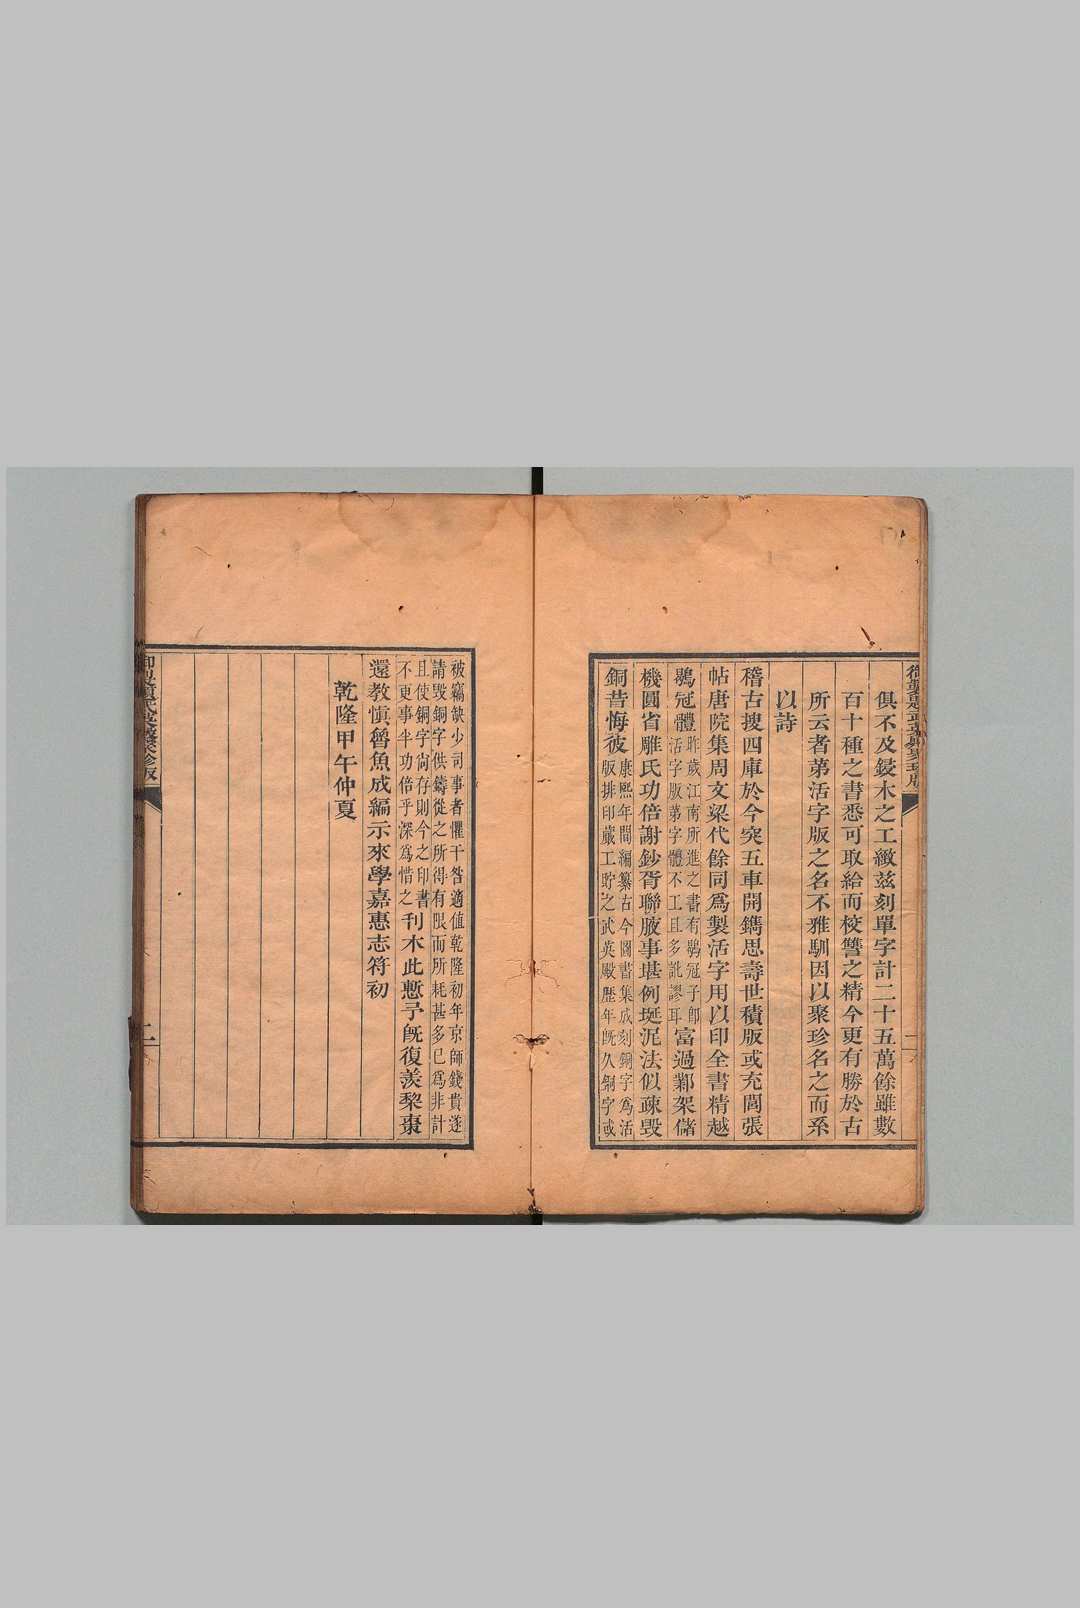 御製題武英殿聚珍版
俱不及鋟木之工緻茲刻單字計二十五萬餘雖數
百十種之書悉可取給而校讐之精今更有勝於古
所云者第活字版之名不雅馴因以聚珍名之而系
以詩
稽古搜四庫於今突五車開鐫思壽世積版或充閭張
帖唐院集周文梁代餘同爲製活字用以印全書精越
鶡冠體
昨歲江南所進之書有鶡冠子即
活字版第字體不工且多訛謬耳
富過鄴架儲
機圓省雕氏功倍謝鈔胥聯腋事堪例埏泥法似疎毀
銅昔悔彼
康熙年間編纂古今圖書集成刻銅字爲活
版排印蕆工貯之武英殿歷年旣久銅字或
被竊缺少司事者懼干咎適值乾隆初年京師錢貴遂
請毀銅字供鑄從之所得有限而所耗甚多已爲非計
且使銅字尚存則今之印書
不更事半功倍乎深爲惜之
刊木此慙予旣復羨棃棗
還教慎魯魚成編示來學嘉惠志符初
乾隆甲午仲夏
御製題武英殿聚珍版
二